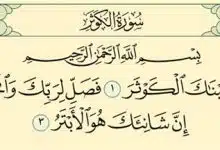 سُورَةُ الْكَوْثَرِ
بِسْمِ اللَّهِ الرَّحْمَٰنِ الرَّحِيمِ
الْكَوْثَرَ ١ فَصَلِّ لِرَبِّكَ
إِنَّ شَانِئَكَ هُوَ الْأَبْتَرُ ٣